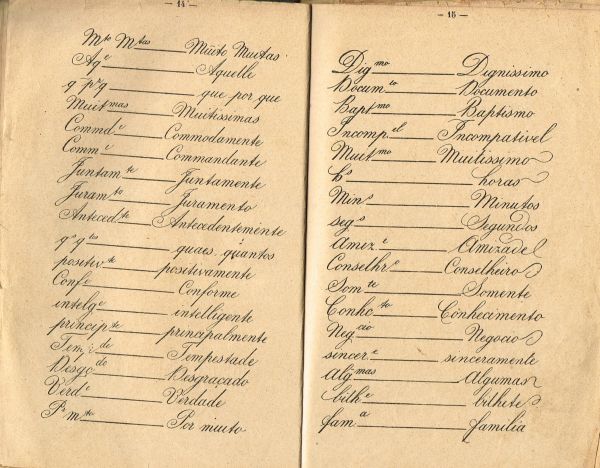 — 14 —
Mto Mtas Muito Muitas
Aqe Aquelle
q pr q que por que
Muitmas Muitissimas
Commde Commodamente
Comme Commandante
Juntamte Juntamente
Juramto Juramento
Antecedte Antecedentemente
qs qtos quaes quantos
positivte positivamente
Confe Conforme
intelge intelligente
principte principalmente
Tempde Tempestade
Desgçdo Desgraçado
Verde Verdade
Pr mto Por muito
— 15 —
Digmo Dignissimo
Documto Documento
Baptmo Baptismo
Incompel Incompativel
Muitmo Muitissimo
hs horas
Mins Minutos
segs Segundos
Amize Amizade
Conselhro Conselheiro
Somte Somente
Conhcto Conhecimento
Negcio Negocio
sincere sinceramente
Algmas Algumas
bilhe bilhete
fama familia